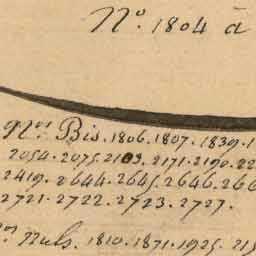 Nº. 1804 à
Nos Bis. 1806. 1807. 1839. 1
2054. 2075. 2103. 2171. 2190. 22
2419. 2644. 2645. 2646. 266
2721. 2722. 2723. 2727.
nos nuls. 1810. 1871. 1925. 215